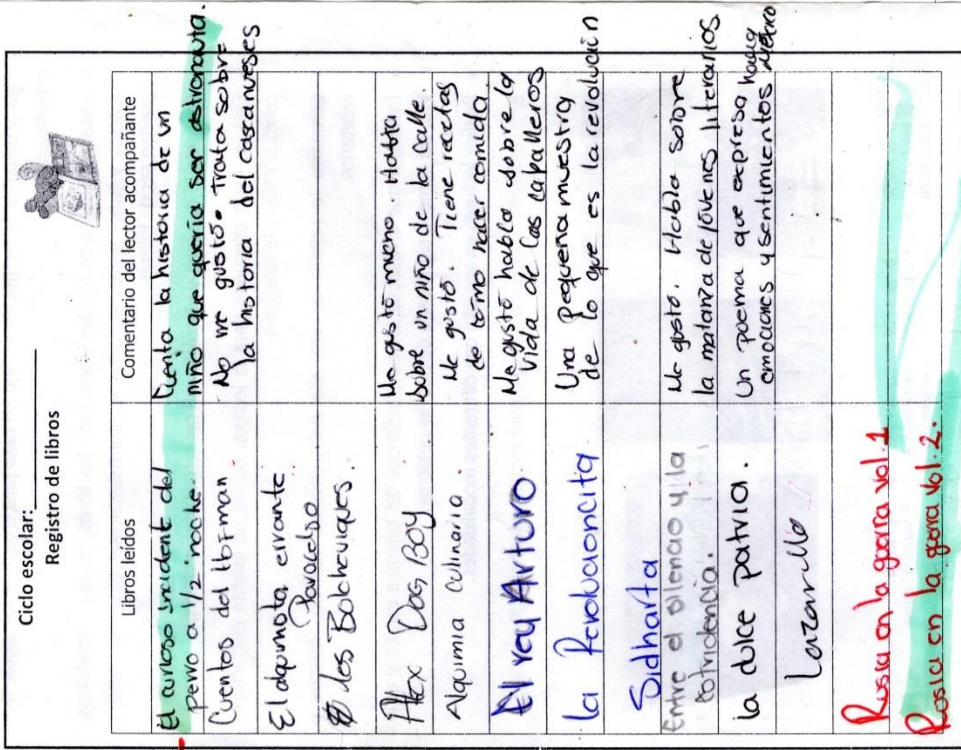 Ciclo escolar: ________
Registro de libros
Libros leídos
Comentario del lector acompañante
El curioso incidente del
perro a 1/2 noche.
Cuenta la historia de un
niño que quería ser astronauta.
Cuentos del libro man
No me gustó. Trata sobre
la historia del cascanueses
El alquimista errante
Paracelso
los Bolcheviques.
Alex Dog Boy
Me gustó mucho. Habla
sobre un niño de la calle.
Alquimia Culinaria.
Me gustó. Tiene recetas
de cómo hacer comida.
El rey Arturo
Me gustó habla sobre la
vida de los caballeros
la Revolucioncita
Una pequeña muestra
de lo que es la revolución
Sidharta
Entre el silencio y la
estridencia.
Me gustó. Habla sobre
la matanza de jóvenes literarios
la dulce patria.
Un poema que expresa
emociones y sentimientos hacia
México
Lazarillo
Rusia en la guerra vol. 1
Rusia en la guerra vol. 2.